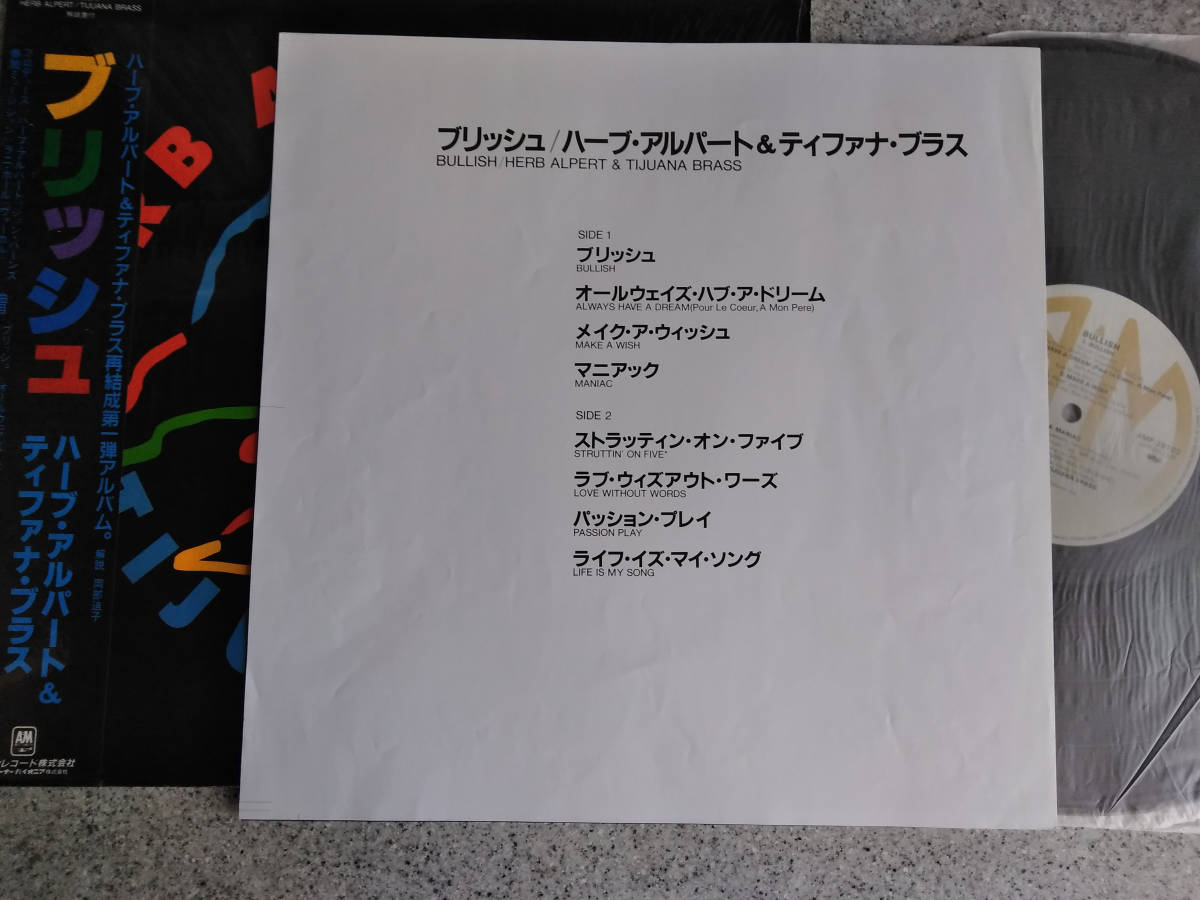 HERB ALPERT/TIJUANA BRASS
解説書付
ブリッシュ
ハーブ・アルパート&ティファナ・ブラス再結成第一弾アルバム。
解説
ハーブ・アルパート&
ティファナ・ブラス
A&M
レコード株式会社
ブリッシュ/ハーブ・アルパート&ティファナ・ブラス
BULLISH/HERB ALPERT & TIJUANA BRASS
SIDE 1
ブリッシュ
BULLISH
オールウェイズ・ハブ・ア・ドリーム
ALWAYS HAVE A DREAM(Pour Le Coeur, A Mon Pere)
メイク・ア・ウィッシュ
MAKE A WISH
マニアック
MANIAC
SIDE 2
ストラッティン・オン・ファイブ
STRUTTIN' ON FIVE*
ラブ・ウィズアウト・ワーズ
LOVE WITHOUT WORDS
パッション・プレイ
PASSION PLAY
ライフ・イズ・マイ・ソング
LIFE IS MY SONG
BULLISH
MAKE A WISH
MANIAC